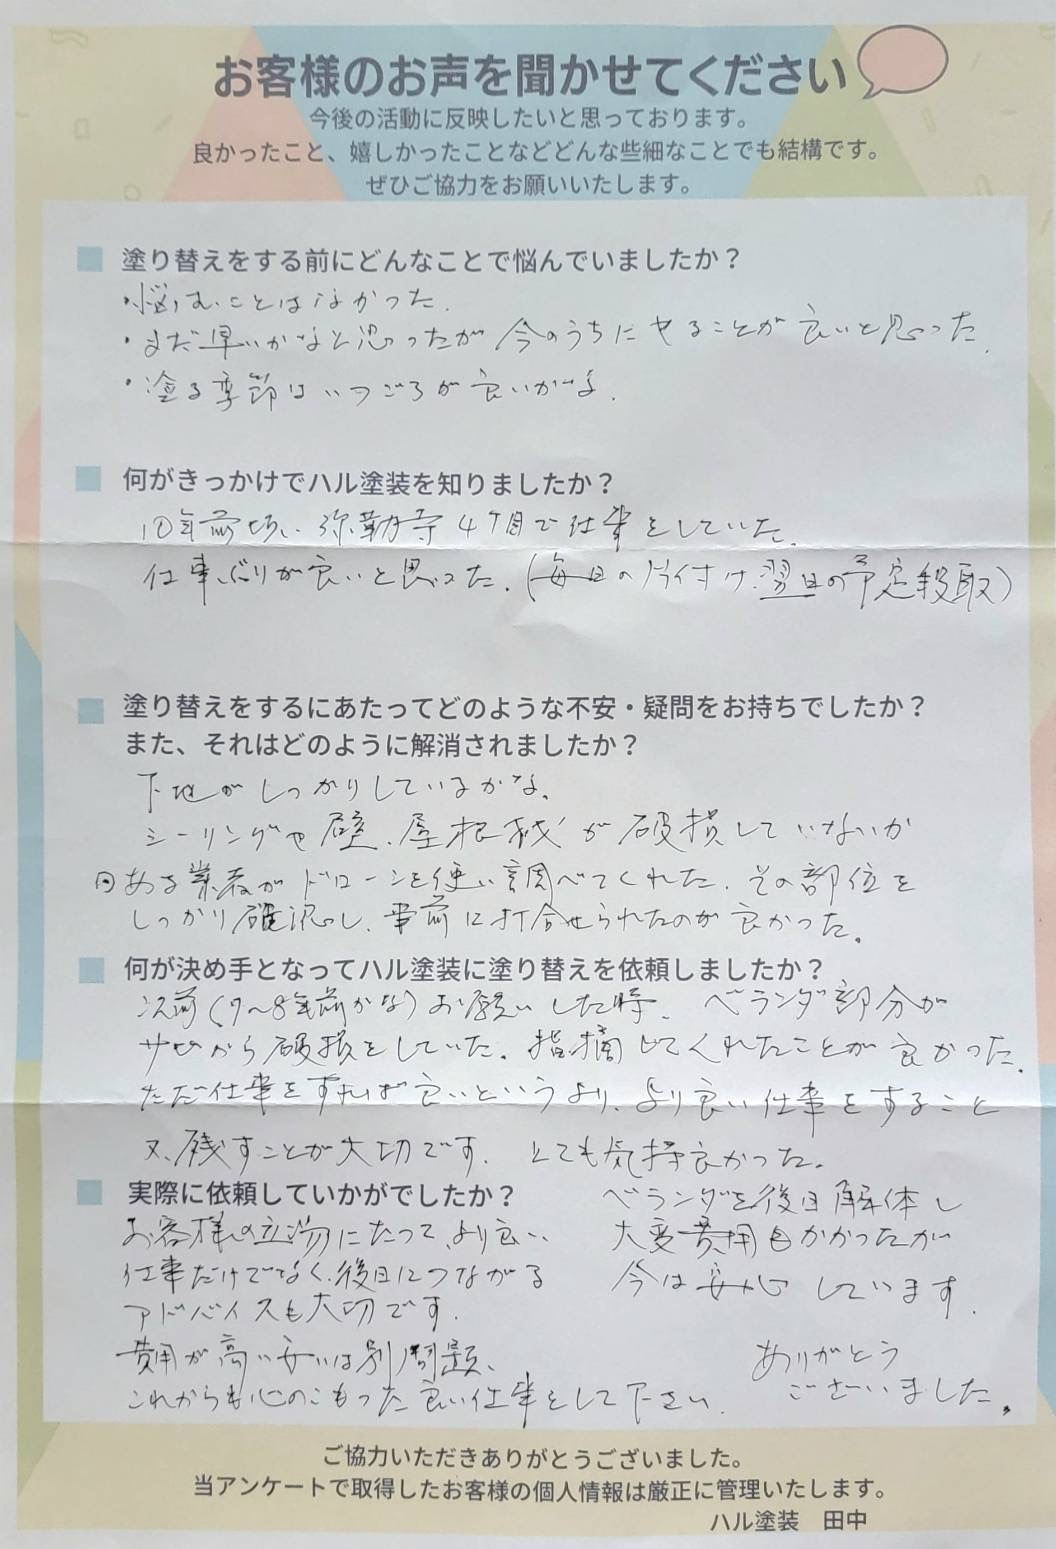 お客様のお声を聞かせてください
今後の活動に反映したいと思っております。
良かったこと、嬉しかったことなどどんな些細なことでも結構です。
ぜひご協力をお願いいたします。
塗り替えをする前にどんなことで悩んでいましたか？
・悩むことはなかった.
・まだ早いかなと思ったが今のうちにやることが良いと思った.
・塗る季節はいつごろが良いかな.
何がきっかけでハル塗装を知りましたか？
10年前頃、弥勒寺4丁目で仕事をしていた.
仕事ぶりが良いと思った.(毎日の片付け.翌日の予定段取)
塗り替えをするにあたってどのような不安・疑問をお持ちでしたか？
また、それはどのように解消されましたか？
下地がしっかりしているかな.
シーリングや壁.屋根が破損していないか
ある業者がドローンを使い調べてくれた.その部位を
しっかり確認し.事前に打合せられたのが良かった。
何が決め手となってハル塗装に塗り替えを依頼しましたか？
次前(7〜8年前かな)お願いした時.ベランダ部分が
サビから破損をしていた.指摘してくれたことが良かった.
ただ仕事をすれば良いというより、より良い仕事をすること
又、残すことが大切です.とても気持良かった。
実際に依頼していかがでしたか？
お客様の立場にたって、より良い
仕事だけでなく、後日につながる
アドバイスも大切です.
費用が高い安いは別問題、
これからも心のこもった良い仕事をして下さい.
ベランダを後日解体し
大変費用もかかったが
今は安心しています.
ありがとう
ございました。
ご協力いただきありがとうございました。
当アンケートで取得したお客様の個人情報は厳正に管理いたします。
ハル塗装　田中